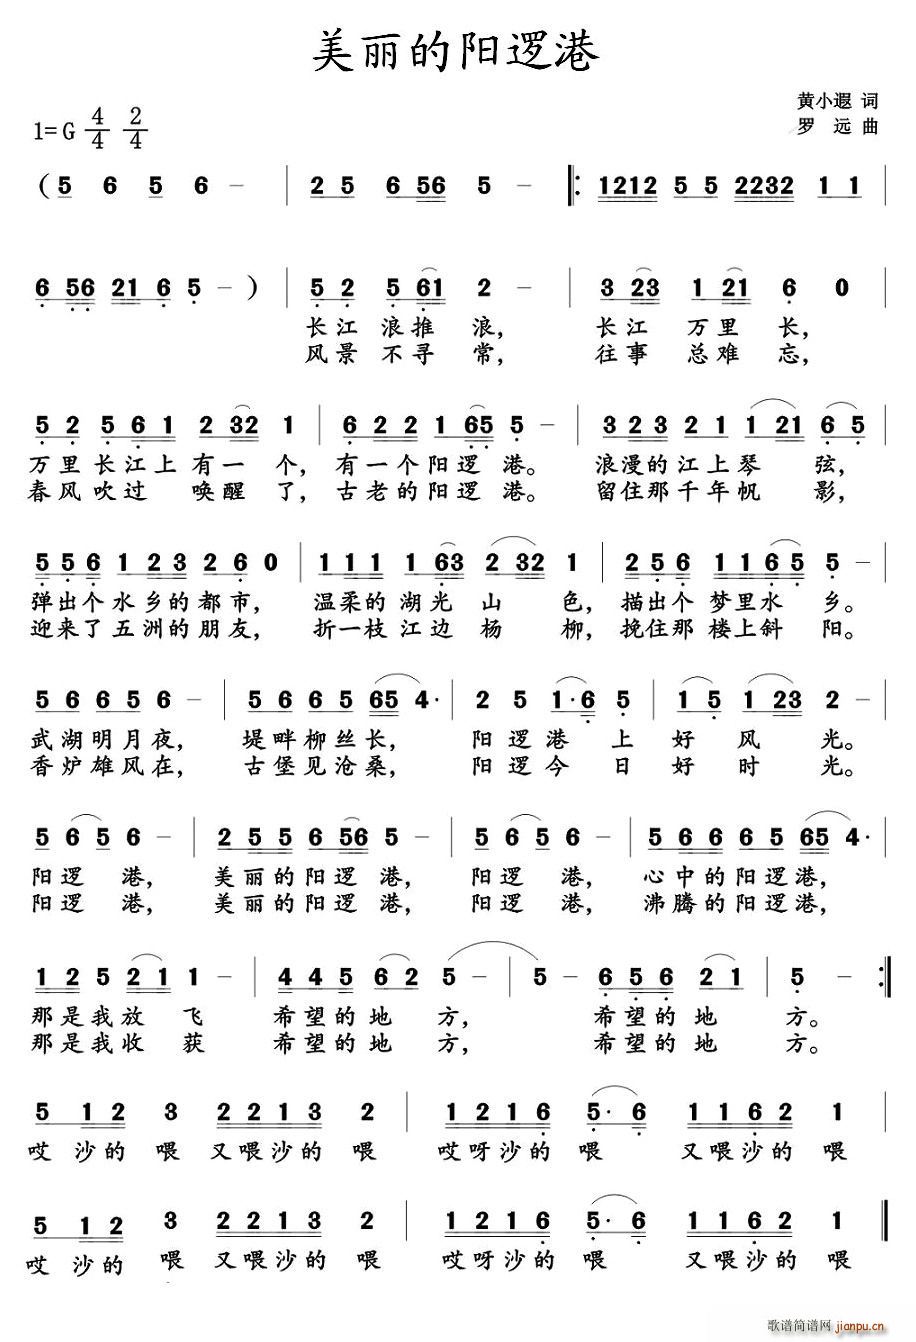 美丽的阳逻港
黄小遐 词
1=G 4/4 2/4
罗 远 曲
(5 6 5 6 - | 2 5 6 56 5 - |: 1212 5 5 2232 1 1 |
6 56 21 6 5 - ) | 5 2 5 61 2 - | 3 23 1 21 6 0 |
长江 浪推 浪, 长江 万里 长,
风景 不寻 常, 往事 总难 忘,
5 2 5 6 1 2 32 1 | 6 2 2 1 65 5 - | 3 2 3 2 1 1 21 6 5 |
万里长江上有一 个, 有一个阳逻 港。 浪漫的江上琴 弦,
春风吹过 唤醒 了, 古老的阳逻 港。 留住那千年帆 影,
5 5 6 1 2 3 2 6 0 | 1 1 1 1 63 2 32 1 | 2 5 6 1 1 6 5 5 - |
弹出个水乡的都市, 温柔的湖光 山 色, 描出个梦里水 乡。
迎来了五洲的朋友, 折一枝江边 杨 柳, 挽住那楼上斜 阳。
5 6 6 5 6 - | 5 6 6 5 65 4· | 2 5 1·6 5 | 1 5 1 23 2 - |
武湖明月夜, 堤畔柳丝长, 阳逻港 上 好 风 光。
香炉雄风在, 古堡见沧桑, 阳逻今 日 好 时 光。
5 6 5 6 - | 2 5 5 6 56 5 - | 5 6 5 6 - | 5 6 6 6 5 65 4· |
阳逻 港, 美丽的阳逻 港, 阳逻 港, 心中的阳逻港,
阳逻 港, 美丽的阳逻 港, 阳逻 港, 沸腾的阳逻港,
1 2 5 2 1 1 - | 4 4 5 6 2 5 - | 5 - 6 5 6 2 1 | 5 - :|
那是我放 飞 希望的地 方, 希望的地 方。
那是我收 获 希望的地 方, 希望的地 方。
5 1 2 3 2 2 1 3 2 | 1 2 1 6 5· 6 1 1 6 2 1 |
哎 沙的 喂 又喂沙的 喂 哎呀沙的 喂 又喂沙的 喂
5 1 2 3 2 2 1 3 2 | 1 2 1 6 5· 6 1 1 6 2 1 ‖
哎 沙的 喂 又喂沙的 喂 哎呀沙的 喂 又喂沙的 喂
歌谱简谱网
jianpu.cn